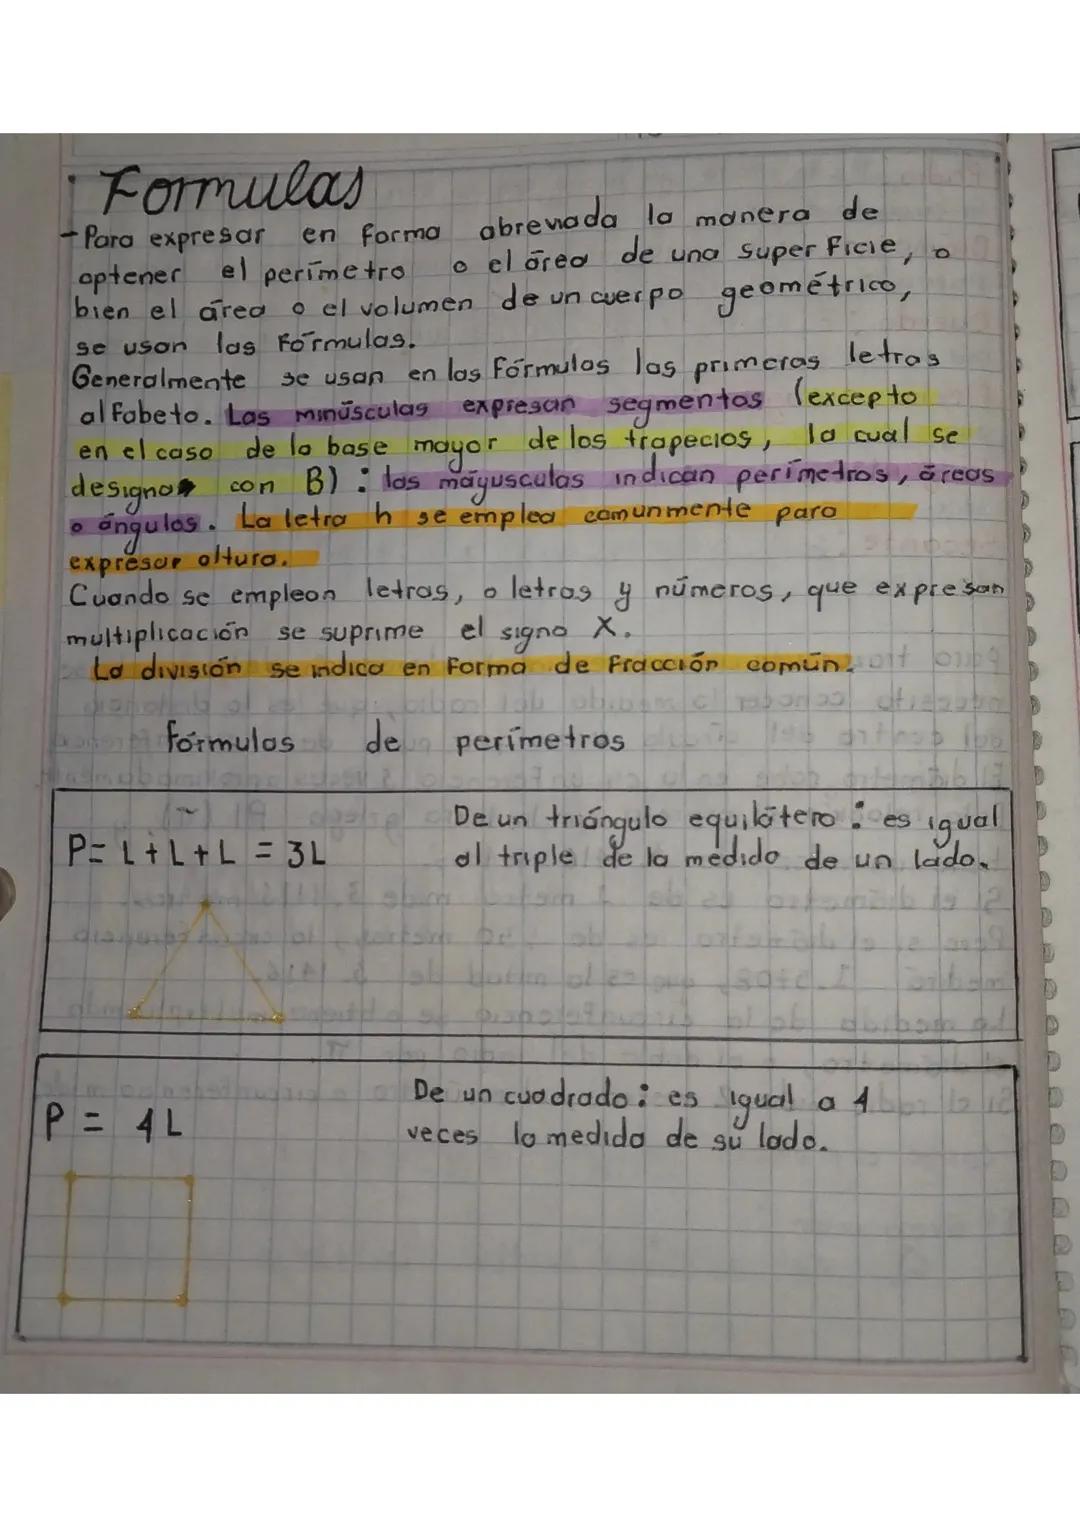 Formulas
-Para expresar en forma abreviada la manera de
optener el perímetro o el área de una superficie, o
bien el área o el volumen de un cuerpo geométrico,
se usan las fórmulas.
Generalmente se usan en las fórmulas las primeras letras
alfabeto. Las minúsculas expresan segmentos (excepto
en el caso de la base mayor de los trapecios, la cual se
designa con B) : las máyusculas indican perímetros, áreas
o ángulos. La letra h se emplea comunmente para
expresar altura.
Cuando se emplean letras, o letras y números, que expresan
multiplicación se suprime el signo X.
La división se indica en forma de fracción común.
fórmulas de perímetros
De un triángulo equilátero : es igual
P= L+L+L = 3L al triple de la medida de un lado.
De un cuadrado : es igual a 4
P = 4L veces la medida de su lado.